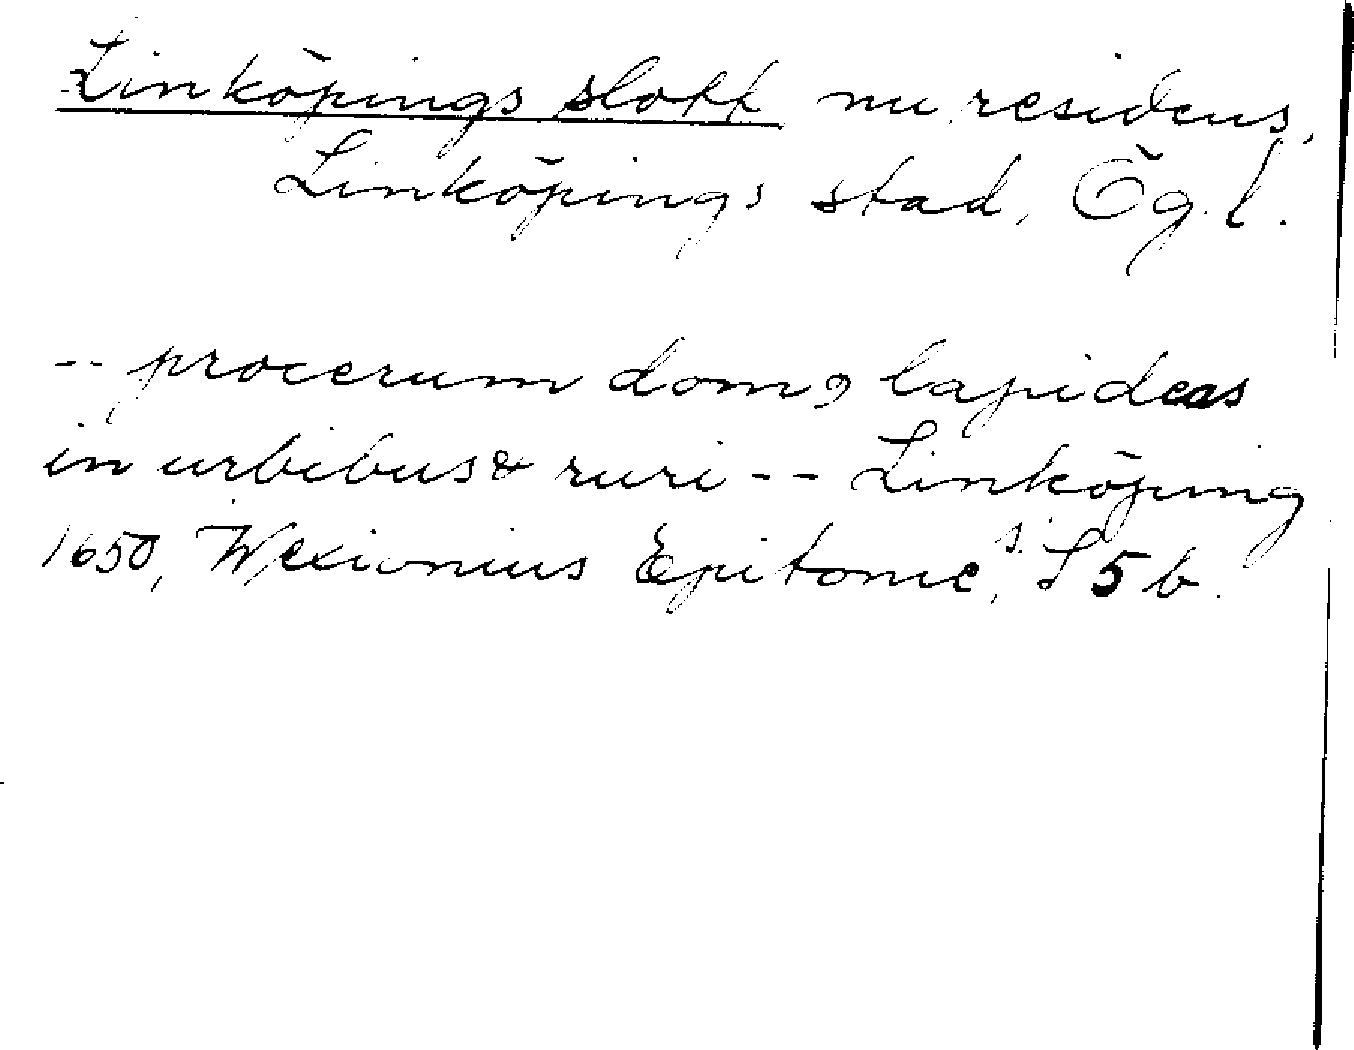 Linköpings slott nu residens,
Linköpings stad, Ög. l.
-- procerum domꝰ lapideas
in urbibus & ruri -- Linköping
1650, Wexionius Epitome, s. S 5 b.